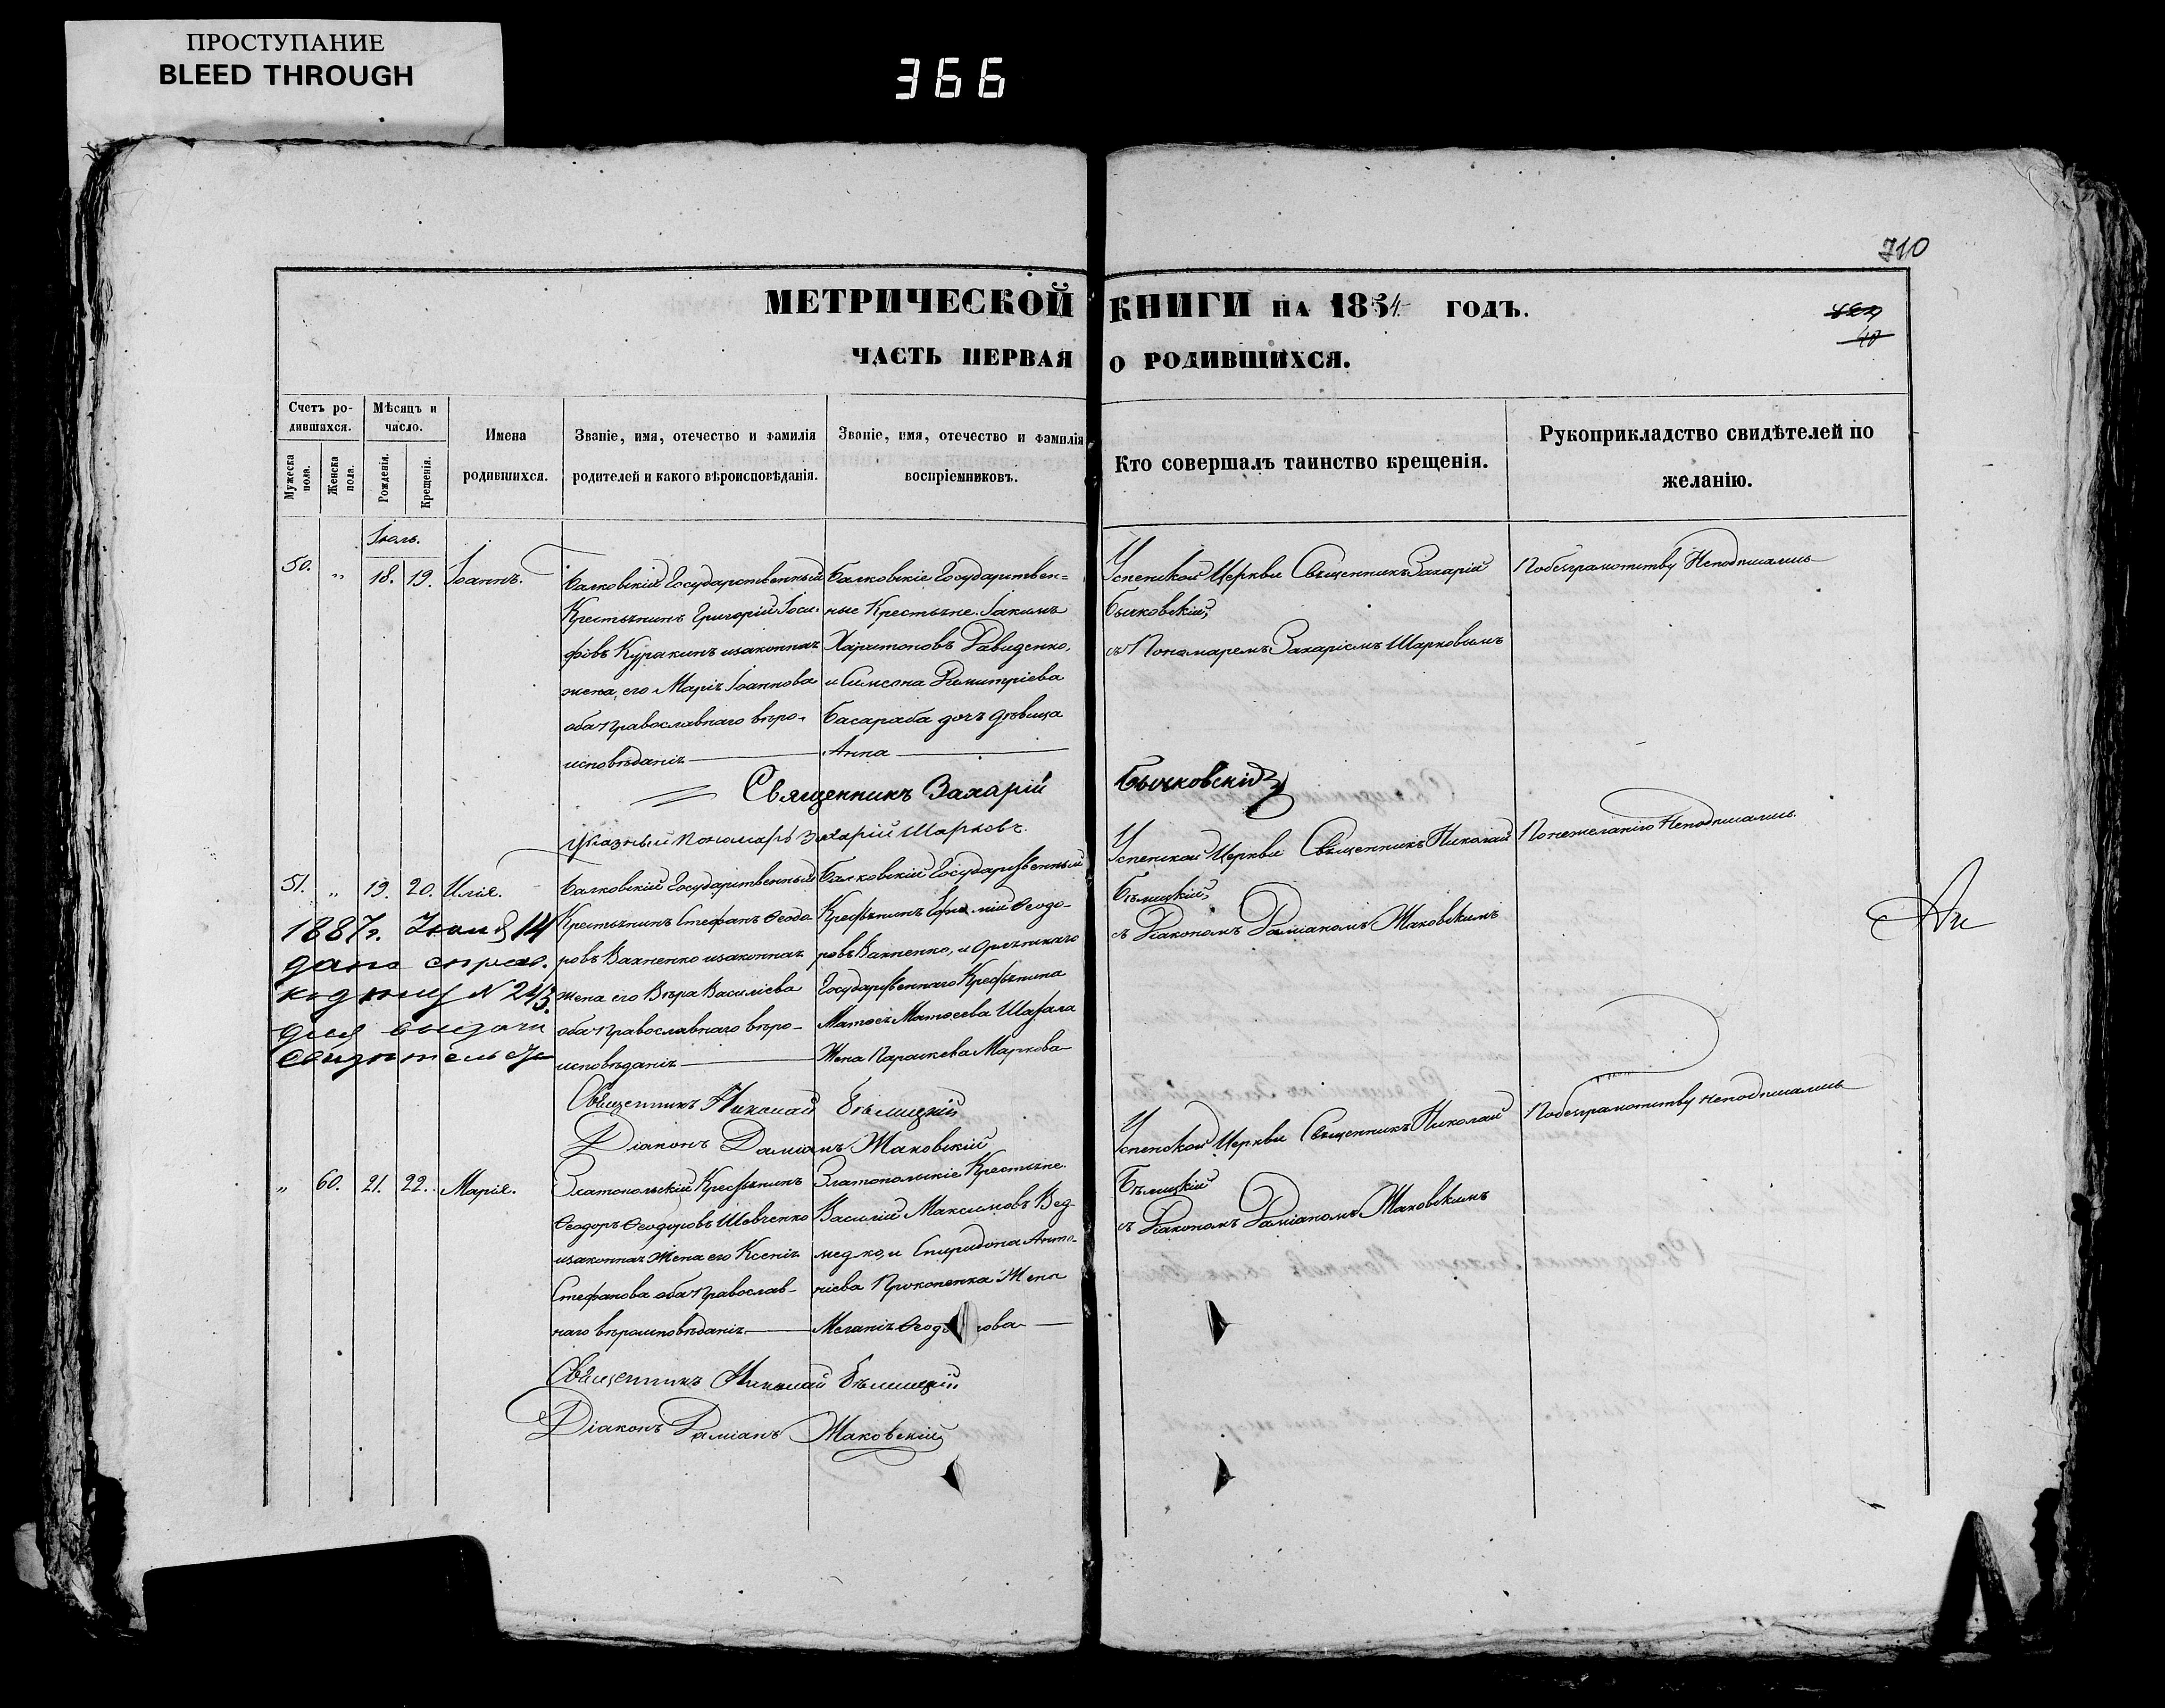 ПРОСТУПАНИЕ
BLEED THROUGH
366
710
МЕТРИЧЕСКОЙ КНИГИ НА 1854 ГОДЪ.
40
ЧАСТЬ ПЕРВАЯ О РОДИВШИХСЯ.
Счетъ ро-
дившихся.
Мужеска
пола.
Женска
пола.
Мѣсяцъ и
число.
Рожденія.
Крещенія.
Имена
родившихся.
Званіе, имя, отечество и фамилія
родителей и какого вѣроисповѣданія.
Званіе, имя, отечество и фамилія
воспріемниковъ.
Кто совершалъ таинство крещенія.
Рукоприкладство свидѣтелей по
желанію.
Іюль.
50. „ 18. 19. Іоаннъ.
Балковскій Государственный
Крестьянинъ Григорій Іоси-
фовъ Куракинъ изаконная
жена, его Марія Іоаннова
оба православнаго вѣро-
исповѣданія
Балковскіе Государствен=
ные Крестьяне. Іакимъ
Харитоновъ Давиденко,
и Симеона Димитріева
Басараба дочь дѣвица
Анна
Успенской Церкви Священникъ Захарій
Бычковскій,
съ Пономаремъ Захаріемъ Шарковымъ
Побезграмотству Неподписались
Священникъ Захарій Бычковскій
Указный Пономарь Захарій Шарковъ.
51. „ 19. 20. Илія.
Балковскій Государственный
Крестьянинъ Стефанъ Ѳеодо-
ровъ Вахненко изаконная
жена его Вѣра Василіева
оба православнаго вѣро-
исповѣданія
Балковскій Государственный
Крестьянинъ Ефимій Ѳеодо-
ровъ Вахненко, и
Государственнаго Крестьянина
Матѳея Матѳеева Шафала
Жена Параскева Маркова
Успенской Церкви Священникъ Николай
Бѣлицкій,
съ Діакономъ Даміаномъ Маковскимъ
Понежеланію Неподписались.
1887г. 14
дана справ.
N 243
для выдачи
Священникъ Николай Бѣлицкій
Діаконъ Даміанъ Маковскій
„ 60. 21. 22. Марія.
Златопольскій Крестьянинъ
Ѳеодоръ Ѳеодоровъ Шевченко
изаконная Жена его Ксенія
Стефанова оба Православ-
наго вѣроисповѣданія
Златопольскіе Крестьяне.
Василій Максимовъ Вед-
медко, и Спиридона Анто-
ніева Прокопенка Жена
Меланія
Успенской Церкви Священникъ Николай
Бѣлицкій
съ Діакономъ Даміаномъ Маковскимъ
Побезграмотству неподписались
Священникъ Николай Бѣлицкій
Діаконъ Даміанъ Маковскій